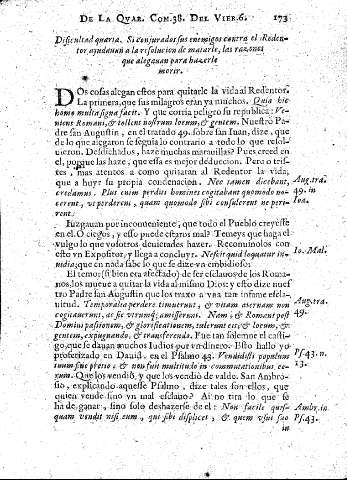 DE LA QVAR. COM. 38. DEL VIER. 6. 173
Dificultad quarta. Si conjurados sus enemigos contra el Reden-
tor ayudauan a la resolucion de matarle, las razones
que alegauan para hazerle
morir.
DOs cosas alegan estos para quitarle la vida al Redentor.
La primera, que sus milagros eran ya muchos. Quia hic
homo multa signa facit. Y que corria peligro su republica: Ve-
nient Romani, & tollent nostrum locum, & gentem. Nuestro Pa-
dre san Augustin, en el tratado 49. sobre san Iuan, dize, que
de lo que alegaron se seguia lo contrario a todo lo que resol-
uieron. Desdichados, haze marauillas? Pues creed en
el, porque las haze, que essa es mejor deduccion. Pero o tris-
tes, mas atentos a como quitaran al Redentor la vida,
que a huyr su propia condenacion. Nec tamen dicebant,
credamus. Plus enim perditi homines cogitabant quomodo no-
cerent, vt perderent, quam quomodo sibi consulerent ne peri-
rent.
Aug. tra.
49. in
Ioa.
Iuzgauan por inconueniente, que todo el Pueblo creyesse
en el. O ciegos, y esso puede estaros mal? Temeys que haga el
vulgo lo que vosotros deuierades hazer. Reconuinolos con
esto vn Expositor, y llega a concluyr. Nescit quid loquatur in-
uidia; que en nada sabe lo que se dize vn embidioso.
Io. Mal.
El temor (si bien era afectado) de ser esclauos de los Roma-
nos, los mueue a quitar la vida al mismo Dios: y esto dize nues-
tro Padre san Augustin que los traxo a vna tan infame escla-
uitud. Temporalia perdere timuerunt, & vitam æternam non
cogitauerunt, ac sic vtrumque amisserunt. Nam, & Romani post
Domini passionem, & glorificationem, tulerunt eis, & locum, &
gentem, expugnando, & transferendo. Fue tan solemne el casti-
go, que se dauan muchos Iudios por vn dinero: Esto halló yo
profetizado en Dauid, en el Psalmo 43. Vendidisti populum
tuum sine pretio, & non fuit multitudo in commutationibus eo-
rum. Que los vendió, y que los vendió de valde. San Ambro-
sio, explicando aquesse Psalmo, dize tales son ellos, que
quien vende sino vn mal esclauo? Ai no tira lo que se
ha de ganar, sino solo deshazerse de el: Non facile quis-
quam vendit nisi eum, qui sibi displicet, & quem vsui suo
in
Aug. tra.
49.
Ps. 43. n.
13.
Ambr. in
Ps. 43.